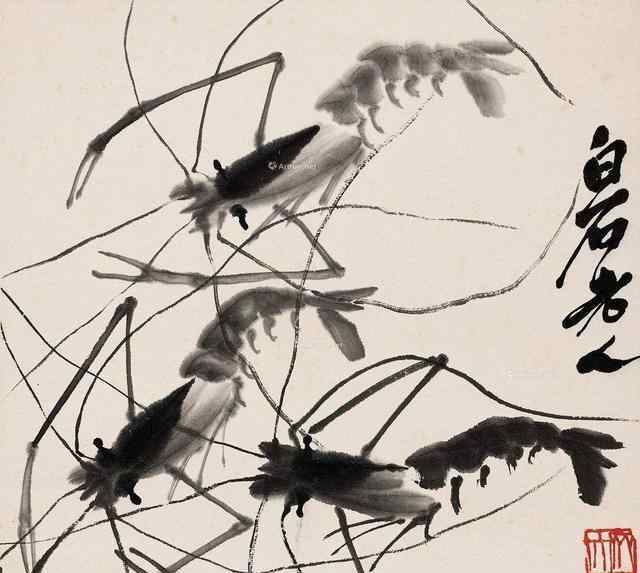 白石老人
Artron.Net